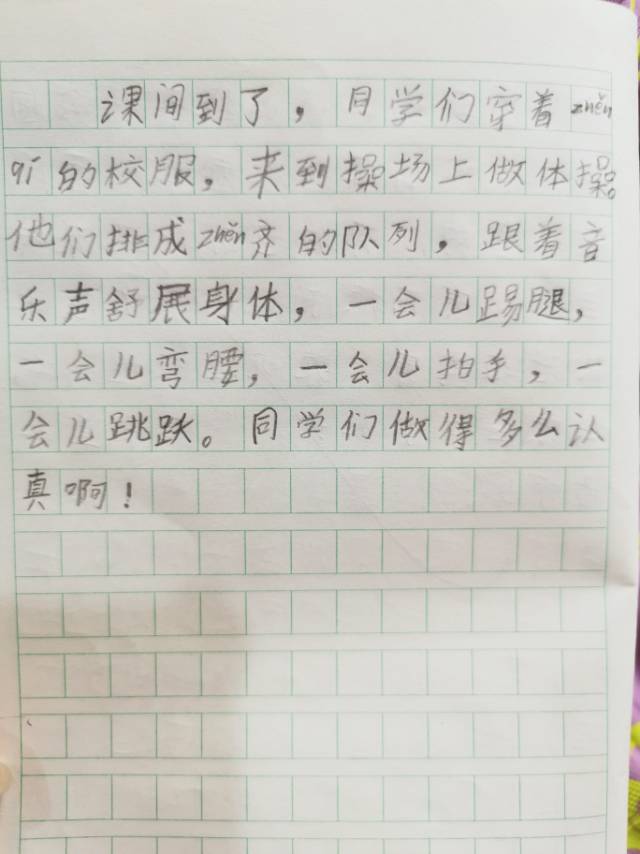 课间到了，同学们穿着zhěn
qí的校服，来到操场上做体操。
他们排成zhěn齐的队列，跟着音
乐声舒展身体，一会儿踢腿，
一会儿弯腰，一会儿拍手，一
会儿跳跃。同学们做得多么认
真啊！